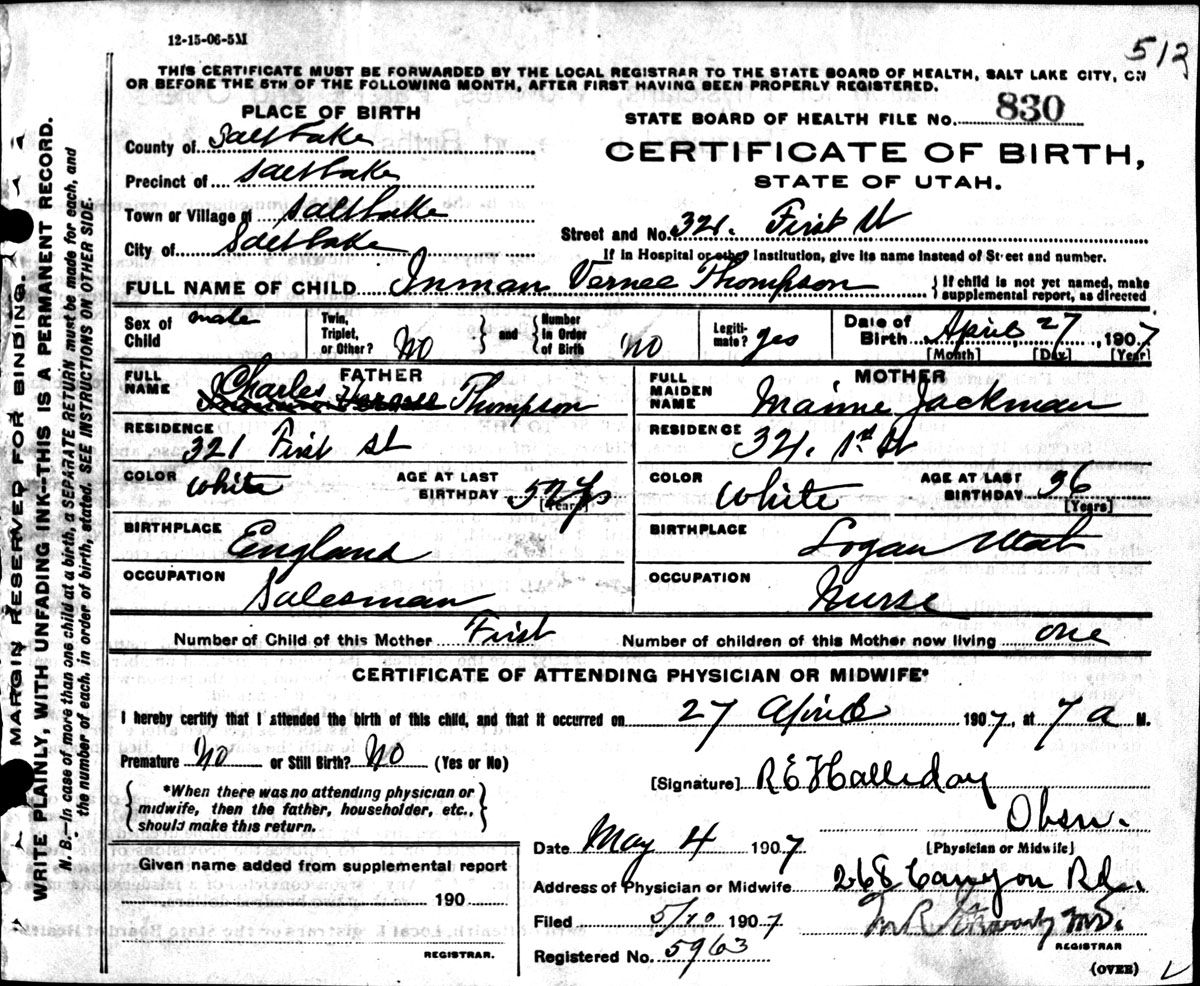 12-15-06-5M
513
THIS CERTIFICATE MUST BE FORWARDED BY THE LOCAL REGISTRAR TO THE STATE BOARD OF HEALTH, SALT LAKE CITY, ON
OR BEFORE THE 5TH OF THE FOLLOWING MONTH, AFTER FIRST HAVING BEEN PROPERLY REGISTERED.
PLACE OF BIRTH
STATE BOARD OF HEALTH FILE NO. 830
County of Salt Lake
CERTIFICATE OF BIRTH,
STATE OF UTAH.
Precinct of Salt Lake
Town or Village of Salt Lake
Street and No. 321. First St
City of Salt Lake
If in Hospital or other Institution, give its name instead of Street and number.
FULL NAME OF CHILD Inman Vernee Thompson
If child is not yet named, make
supplemental report, as directed
Sex of Child male
Twin, Triplet, or Other? No
and
Number in Order of Birth No
Legiti-mate? yes
Date of Birth April, 27, 1907
[Month] [Day] [Year]
FATHER
FULL NAME Charles Thompson
MOTHER
FULL MAIDEN NAME Maime Jackman
RESIDENCE 321 First St
RESIDENCE 321. 1st St
COLOR White
AGE AT LAST BIRTHDAY yrs
[Years]
COLOR White
AGE AT LAST BIRTHDAY 36
[Years]
BIRTHPLACE England
BIRTHPLACE Logan Utah
OCCUPATION Salesman
OCCUPATION Nurse
Number of Child of this Mother First
Number of children of this Mother now living one
CERTIFICATE OF ATTENDING PHYSICIAN OR MIDWIFE*
I hereby certify that I attended the birth of this child, and that it occurred on 27 April 1907, at 7 a M.
Premature No or Still Birth? No (Yes or No)
[Signature] R E Halliday
*When there was no attending physician or
midwife, then the father, householder, etc.,
should make this return.
Date May 4 1907
[Physician or Midwife]
Given name added from supplemental report
190
REGISTRAR.
Address of Physician or Midwife 268 Canyon Rd.
Filed 5/20 1907
M.D.
REGISTRAR
Registered No. 5963
(OVER)
MARGIN RESERVED FOR BINDING.
WRITE PLAINLY, WITH UNFADING INK—THIS IS A PERMANENT RECORD.
N. B.—In case of more than one child at a birth, a SEPARATE RETURN must be made for each, and
the number of each, in order of birth, stated. SEE INSTRUCTIONS ON OTHER SIDE.